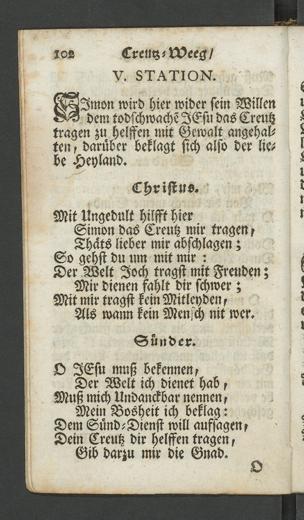 102 Creutz-Weeg/
V. STATION.
SImon wird hier wider sein Willen
dem todschwachẽ JEsu das Creutz
tragen zu helffen mit Gewalt angehal-
ten, darüber beklagt sich also der lie-
be Heyland.
Christus.
Mit Ungedult hilfft hier
Simon das Creutz mir tragen,
Thäts lieber mir abschlagen;
So gehst du um mit mir:
Der Welt Joch tragst mit Freuden;
Mir dienen fahlt dir schwer;
Mit mir tragst kein Mitleyden,
Als wann kein Mensch nit wer.
Sünder.
O JEsu muß bekennen,
Der Welt ich dienet hab,
Muß mich Undanckbar nennen,
Mein Bosheit ich beklag:
Dem Sünd-Dienst will aufsagen,
Dein Creutz dir helffen tragen,
Gib darzu mir die Gnad.
O